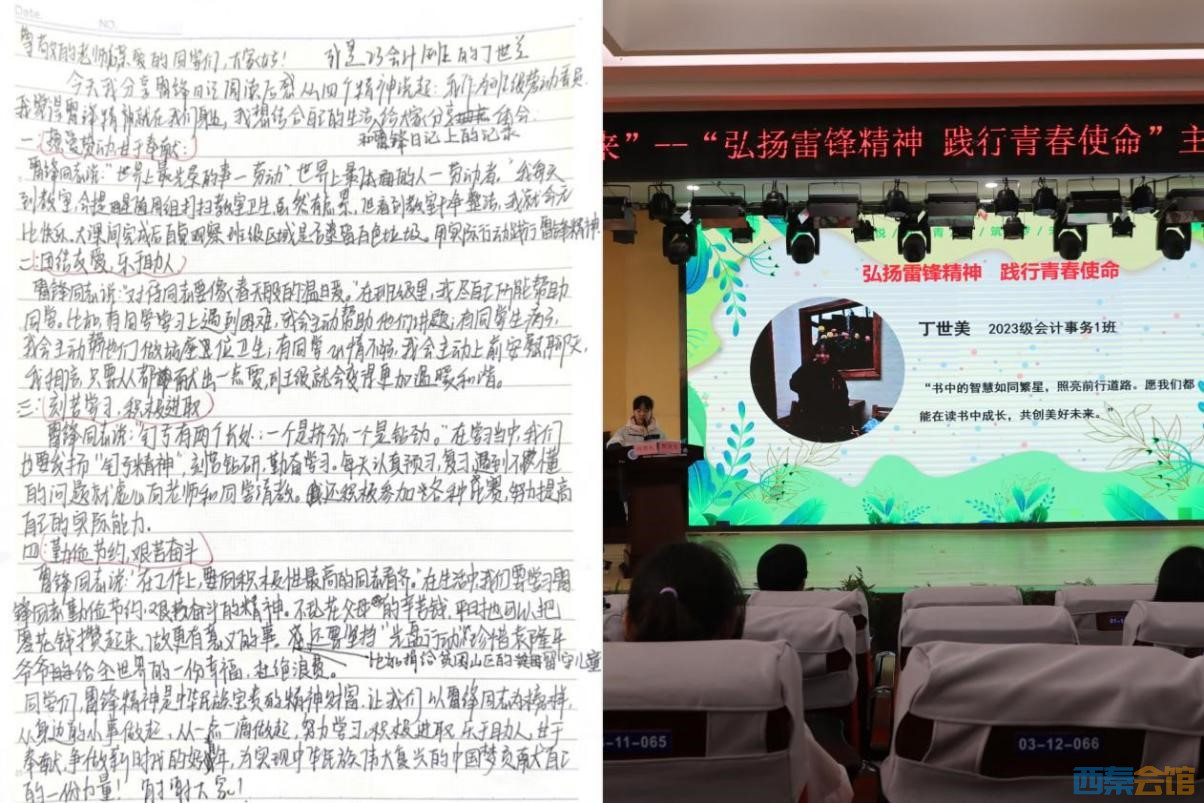 Date.
NO.
尊敬的老师、亲爱的同学们,大家好! 我是23会计1班的丁世美
今天我分享雷锋日记阅读后感从四个精神说起:我作为班级劳动委员,
我觉得雷锋精神就在我们身边,我想结合自己的生活给大家分享体会.
和雷锋日记上的记录
一:热爱劳动,甘于奉献:
雷锋同志说:“世界上最光荣的事—劳动”.世界上最体面的人—劳动者.”我每天
到教室,会提醒值周组打扫教室卫生.虽然有点累,但看到教室干净整洁,我就会无
比快乐.大课间完成后首要观察班级区域是否遗留白色垃圾。用实际行动践行雷锋精神.
二:团结友爱,乐于助人
雷锋同志说:“对待同志要像春天般的温暖。”在班级里,我尽自己所能帮助
同学。比如,有同学学习上遇到困难,我会主动帮助他们讲题;有同学生病了,
我会主动帮他们做好座位卫生;有同学心情不好,我会主动上前安慰聊天,
我相信,只要人人都献出一点爱,班级就会变得更加温暖和谐。
三:刻苦学习,积极进取
雷锋同志说:“钉子有两个长处:一个是挤劲,一个是钻劲。”在学习当中,我们
也要发扬“钉子精神”,刻苦钻研,勤奋学习。每天认真预习,复习,遇到不懂
的问题就虚心向老师和同学请教。还积极参加各种比赛,努力提高
自己的实际能力.
四:勤俭节约,艰苦奋斗
雷锋同志说:“在工作上,要向积极性最高的同志看齐。”在生活中我们要学习雷
锋同志勤俭节约,艰苦奋斗的精神。不乱花父母的辛苦钱,平时也可以把
零花钱攒起来,做更有意义的事。还要坚持“光盘行动”珍惜袁隆平
爷爷给全世界的一份幸福,杜绝浪费。 比如捐给贫困山区的留守儿童
同学们,雷锋精神是中华民族宝贵的精神财富.让我们以雷锋同志为榜样,
从身边的小事做起,从一点一滴做起,努力学习,积极进取,乐于助人,甘于
奉献,争做新时代的好少年,为实现中华民族伟大复兴的中国梦贡献自己
的一份力量! 谢谢大家!
来”--“弘扬雷锋精神 践行青春使命”主
弘扬雷锋精神 践行青春使命
丁世美 2023级会计事务1班
“书中的智慧如同繁星,照亮前行道路。愿我们都
能在读书中成长,共创美好未来。”
-11-065
03-12-066
西秦会馆